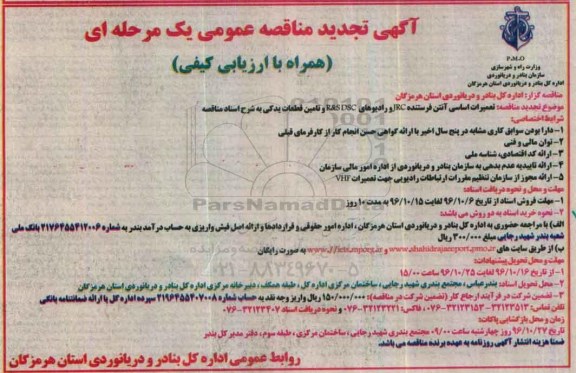 آگهی تجدید مناقصه عمومی یک مرحله ای
(همراه با ارزیابی کیفی)
P.M.O
وزارت راه و شهرسازی
سازمان بنادر و دریانوردی
اداره کل بنادر و دریانوردی استان هرمزگان
مناقصه گزار: اداره کل بنادر و دریانوردی استان هرمزگان
موضوع تجدید مناقصه: تعمیرات اساسی آنتن فرستنده JRC و رادیوهای R&S DSC و تامین قطعات یدکی به شرح اسناد مناقصه
شرایط اختصاصی:
۱- دارا بودن سوابق کاری مشابه در پنج سال اخیر با ارائه گواهی حسن انجام کار از کارفرمای قبلی
۲- توان مالی و فنی
۳- ارائه کد اقتصادی، شناسه ملی
۴- ارائه تاییدیه عدم بدهی به سازمان بنادر و دریانوردی از اداره امور مالی سازمان
۵- ارائه مجوز از سازمان تنظیم مقررات ارتباطات رادیویی جهت تعمیرات VHF
مهلت و محل و نحوه دریافت اسناد:
۱- مهلت فروش اسناد از تاریخ ۹۶/۱۰/۶ لغایت ۹۶/۱۰/۱۵ به مدت ۱۰ روز
۲- نحوه خرید اسناد به دو روش می باشد:
الف) با مراجعه حضوری به اداره کل بنادر و دریانوردی استان هرمزگان، اداره امور حقوقی و قراردادها و ارائه اصل فیش واریزی به حساب درآمد بندر به شماره ۲۱۷۶۴۵۵۴۱۲۰۰۶ بانک ملی
شعبه بندر شهید رجایی مبلغ ۳۰۰/۰۰۰ ریال
ب) از طریق سایت های www.shahidrajaeeport.pmo.ir و به صورت رایگان
مهلت و محل تحویل پیشنهادات:
۱- از تاریخ ۹۶/۱۰/۱۶ لغایت ۹۶/۱۰/۲۵ ساعت ۱۵/۰۰
۲- محل تحویل اسناد: بندرعباس، مجتمع بندری شهید رجایی، ساختمان مرکزی اداره کل، طبقه همکف، دبیرخانه مرکزی اداره کل بنادر و دریانوردی استان هرمزگان
۳- تضمین شرکت در فرآیند ارجاع کار (تضمین شرکت در مناقصه): ۱۵۰/۰۰۰/۰۰۰ ریال واریز وجه نقد به حساب شماره ۲۱۹۶۴۵۵۴۰۷۰۰۸ سپرده اداره کل یا ارائه ضمانتنامه بانکی
زمان و محل بازگشایی پاکات:
تاریخ ۹۶/۱۰/۲۷ روز چهارشنبه ساعت ۰۹/۰۰ مجتمع بندری شهید رجایی، ساختمان مرکزی، طبقه سوم، دفتر مدیر کل بندر
ضمنا هزینه انتشار آگهی روزنامه به عهده برنده مناقصه می باشد.
روابط عمومی اداره کل بنادر و دریانوردی استان هرمزگان
ParsNamadData
۰۲۱-۸۸۳۴۹۶۷۰-۵